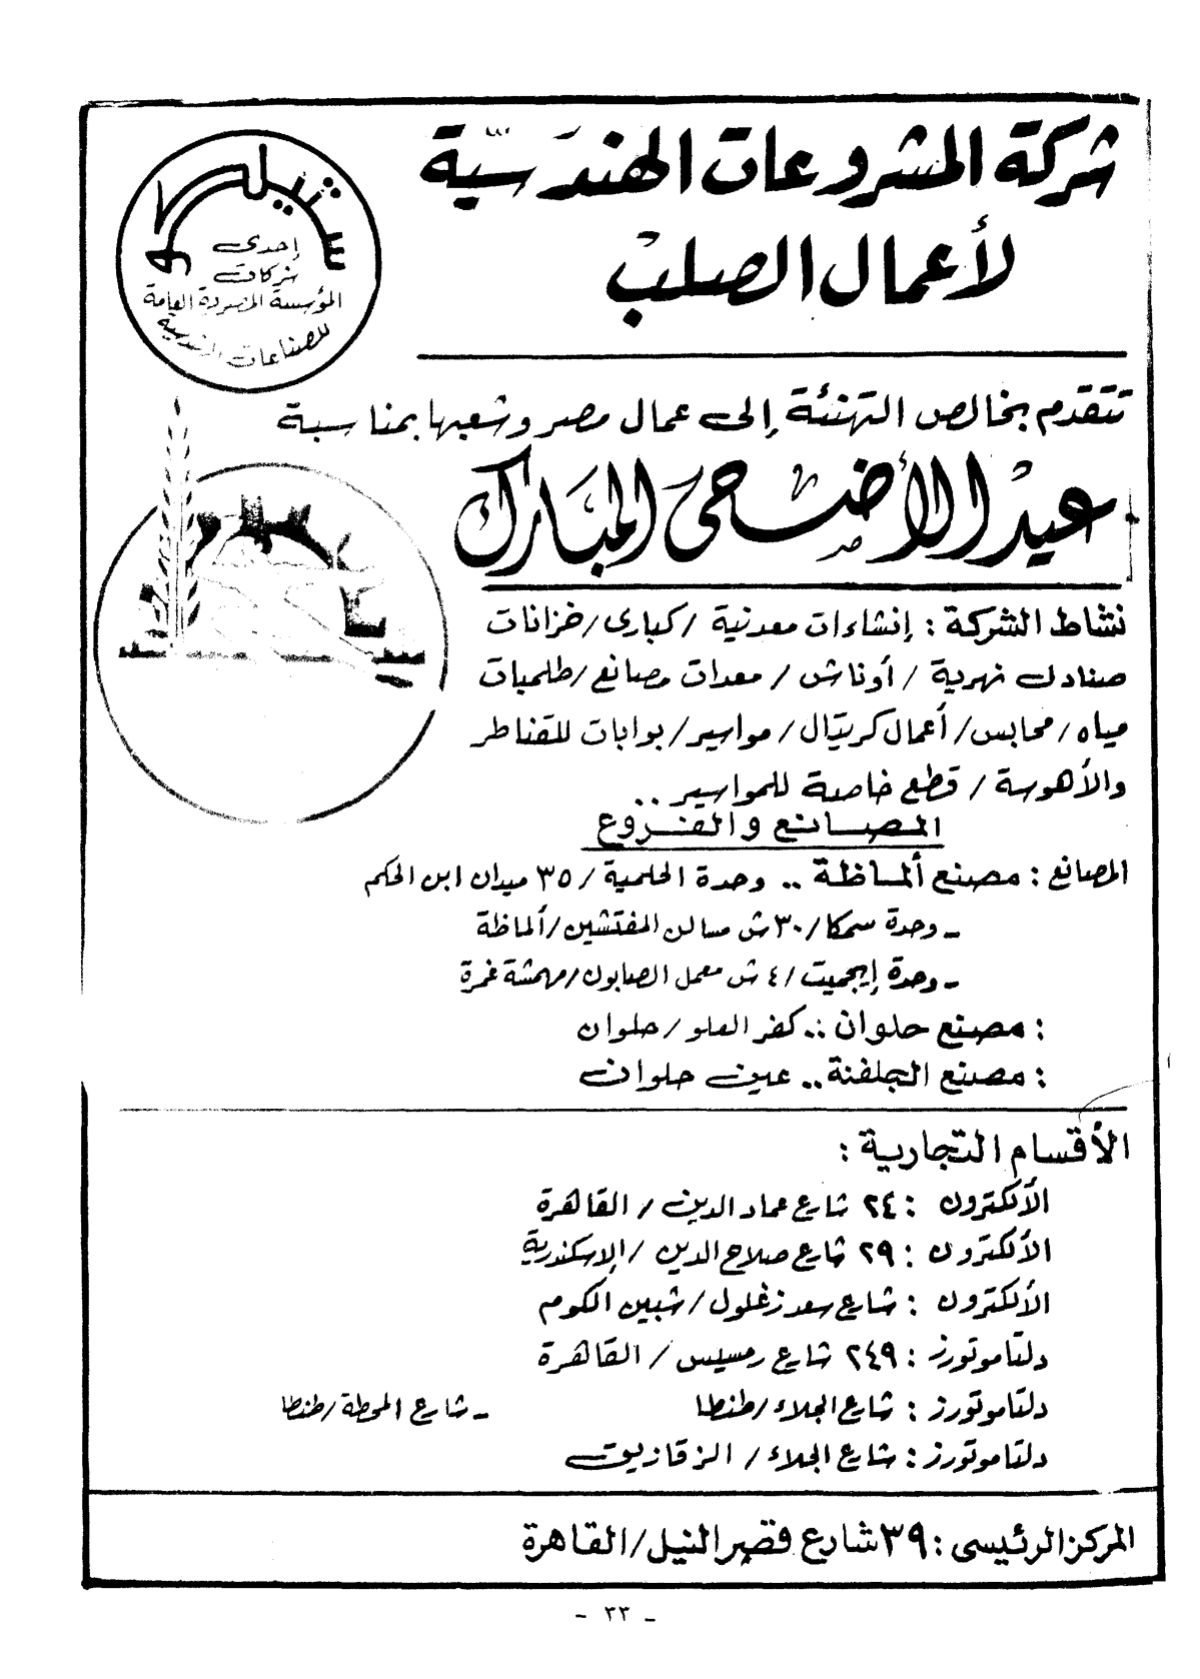 شركة المشروعات الهندسية
لأعمال الصلب
ستيلكو
إحدى
شركات
المؤسسة المصرية العامة
للصناعات الهندسية
تتقدم بخالص التهنئة إلى عمال مصر وشعبها بمناسبة
عيد الأضحى المبارك
نشاط الشركة : إنشاءات معدنية / كبارى / خزانات
صنادل نهرية / أوناش / معدات مصانع / طلمبات
مياه / محابس / أعمال كريتال / مواسير / بوابات للقناطر
والأهوسة / قطع خاصة للمواسير ..
المصانع والفروع
المصانع : مصنع ألماظة .. وحدة الحلمية / ٣٥ ميدان ابن الحكم
- وحدة سمكا / ٣٠ ش مساكن المفتشين / ألماظة
- وحدة إيجميت / ٤ ش معمل الصابون / مهمشة غمرة
: مصنع حلوان .. كفر العلو / حلوان
: مصنع الجلفنة .. عين حلوان
الأقسام التجارية :
الألكترون : ٢٤ شارع عماد الدين / القاهرة
الألكترون : ٢٩ شارع صلاح الدين / الإسكندرية
الألكترون : شارع سعد زغلول / شبين الكوم
دلتا موتورز : ٢٤٩ شارع رمسيس / القاهرة
دلتا موتورز : شارع الجلاء / طنطا - شارع المحطة / طنطا
دلتا موتورز : شارع الجلاء / الزقازيق
المركز الرئيسى : ٣٩ شارع قصر النيل / القاهرة
- ٣٣ -